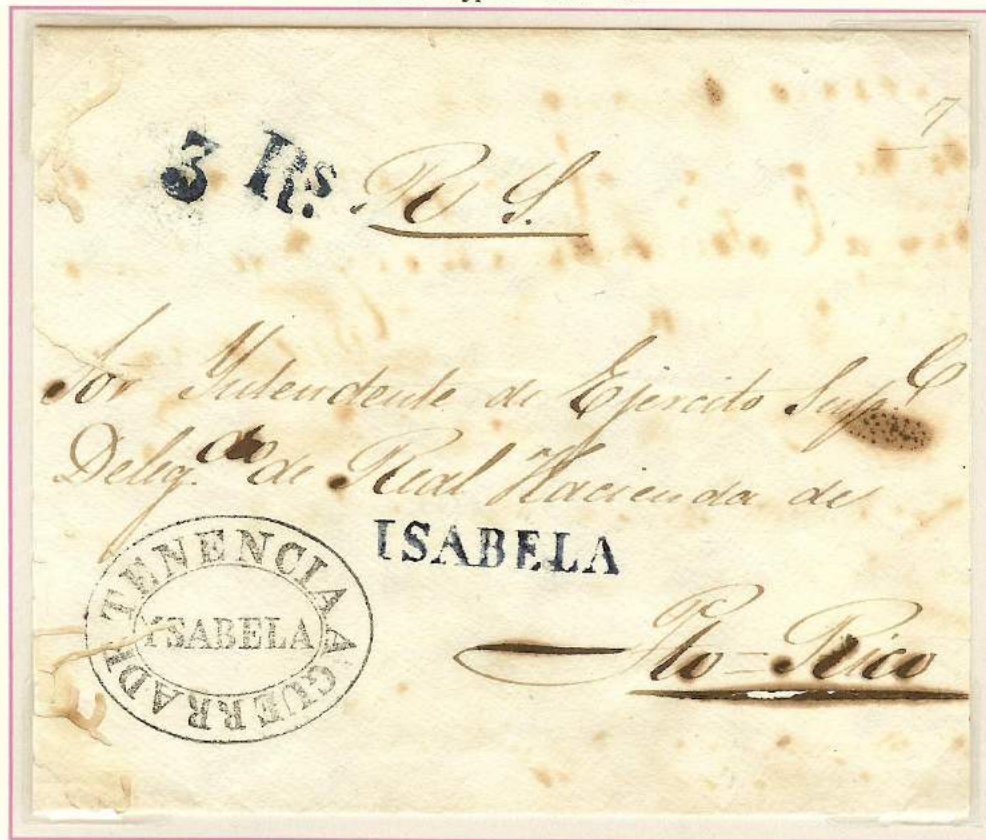 7
3 Rs.
Rl S.
Sor Yntendente de Ejercito Sup.
Deleg.do de Real Hacienda de
ISABELA
TENENCIA A GUERRA DE
YSABELA
Pto-Rico